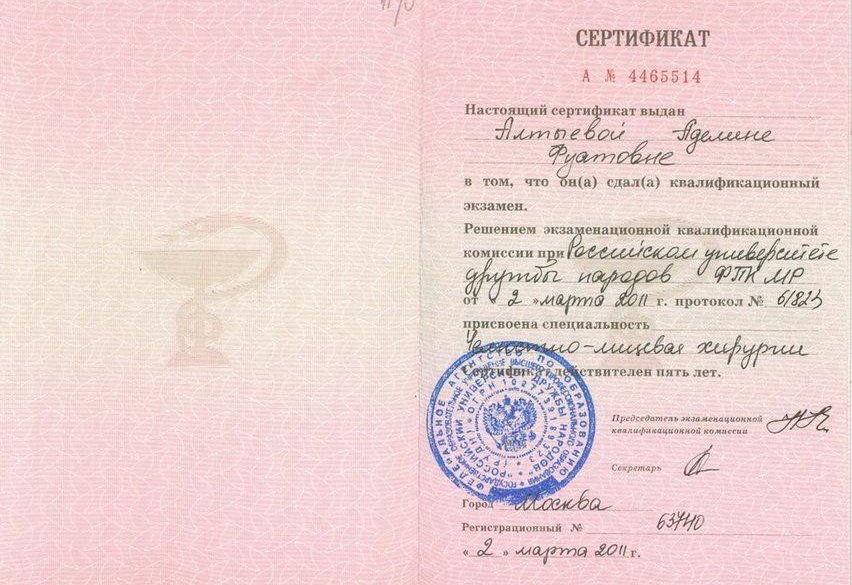 СЕРТИФИКАТ
А № 4465514
Настоящий сертификат выдан
Алтыевой Аделине
Фуатовне
в том, что он(а) сдал(а) квалификационный
экзамен.
Решением экзаменационной квалификационной
комиссии при Российском университете
дружбы народов ФПК МР
от « 2 » марта 2011 г. протокол №
присвоена специальность
Челюстно-лицевая хирургия
Сертификат действителен пять лет.
Председатель экзаменационной
квалификационной комиссии
Секретарь
Город Москва
Регистрационный № 63740
« 2 » марта 2011 г.
ФЕДЕРАЛЬНОЕ АГЕНТСТВО ПО ОБРАЗОВАНИЮ
РОССИЙСКИЙ УНИВЕРСИТЕТ ДРУЖБЫ НАРОДОВ